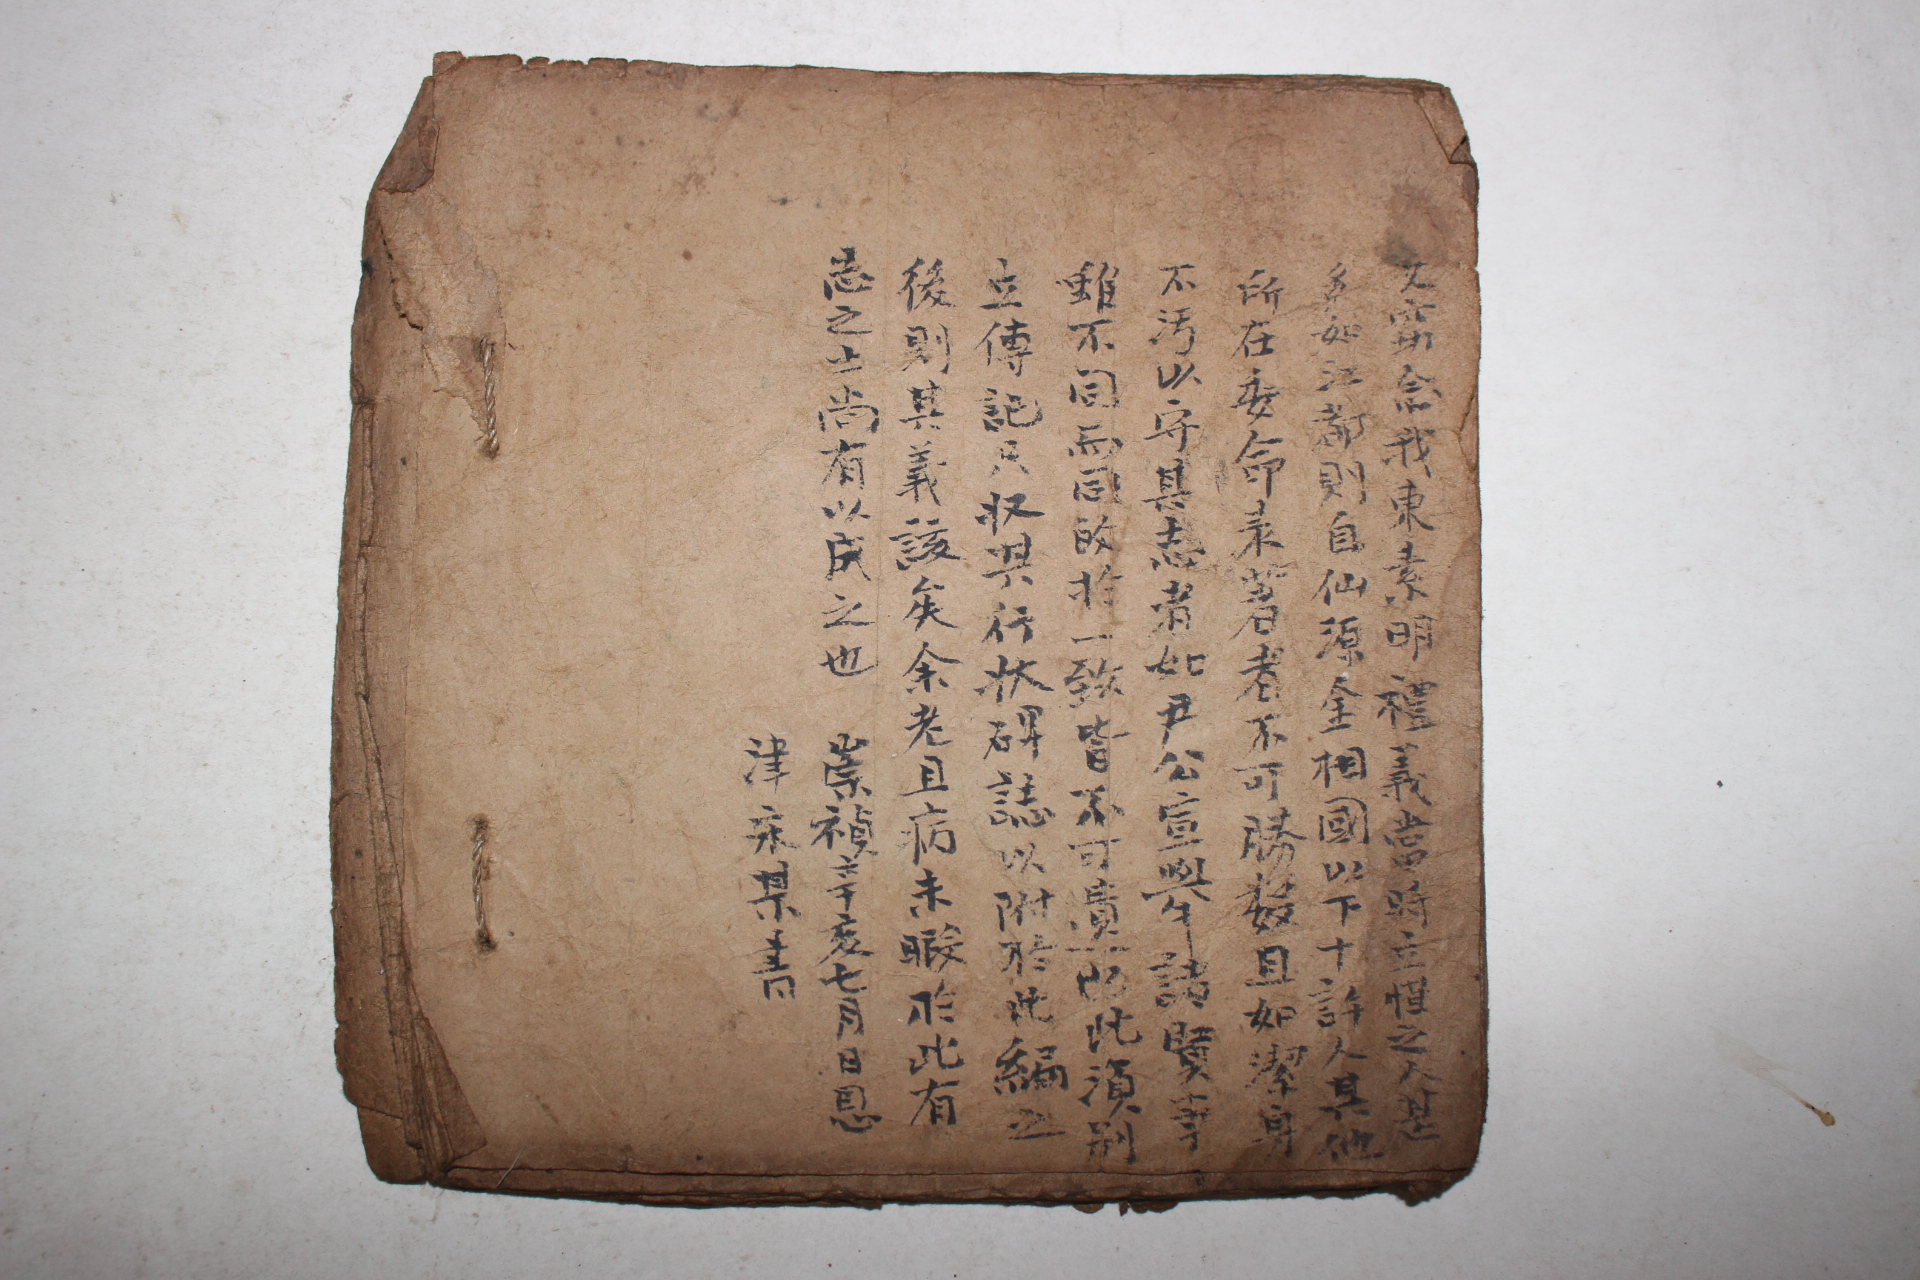 又竊念我東素明禮義當時立慬之人甚
多如江都則自仙源金相國以下十許人其他
所在委命表著者不可勝數且如潔身
不汚以守其志者如尹公宣擧諸賢事
雖不同而同歸於一致皆不可廢也此須別
立傳記只收其行狀碑誌以附於此編之
後則其義該矣余老且病未暇於此有
志之士尚有以成之也 崇禎辛亥七月日恩
津宋某書